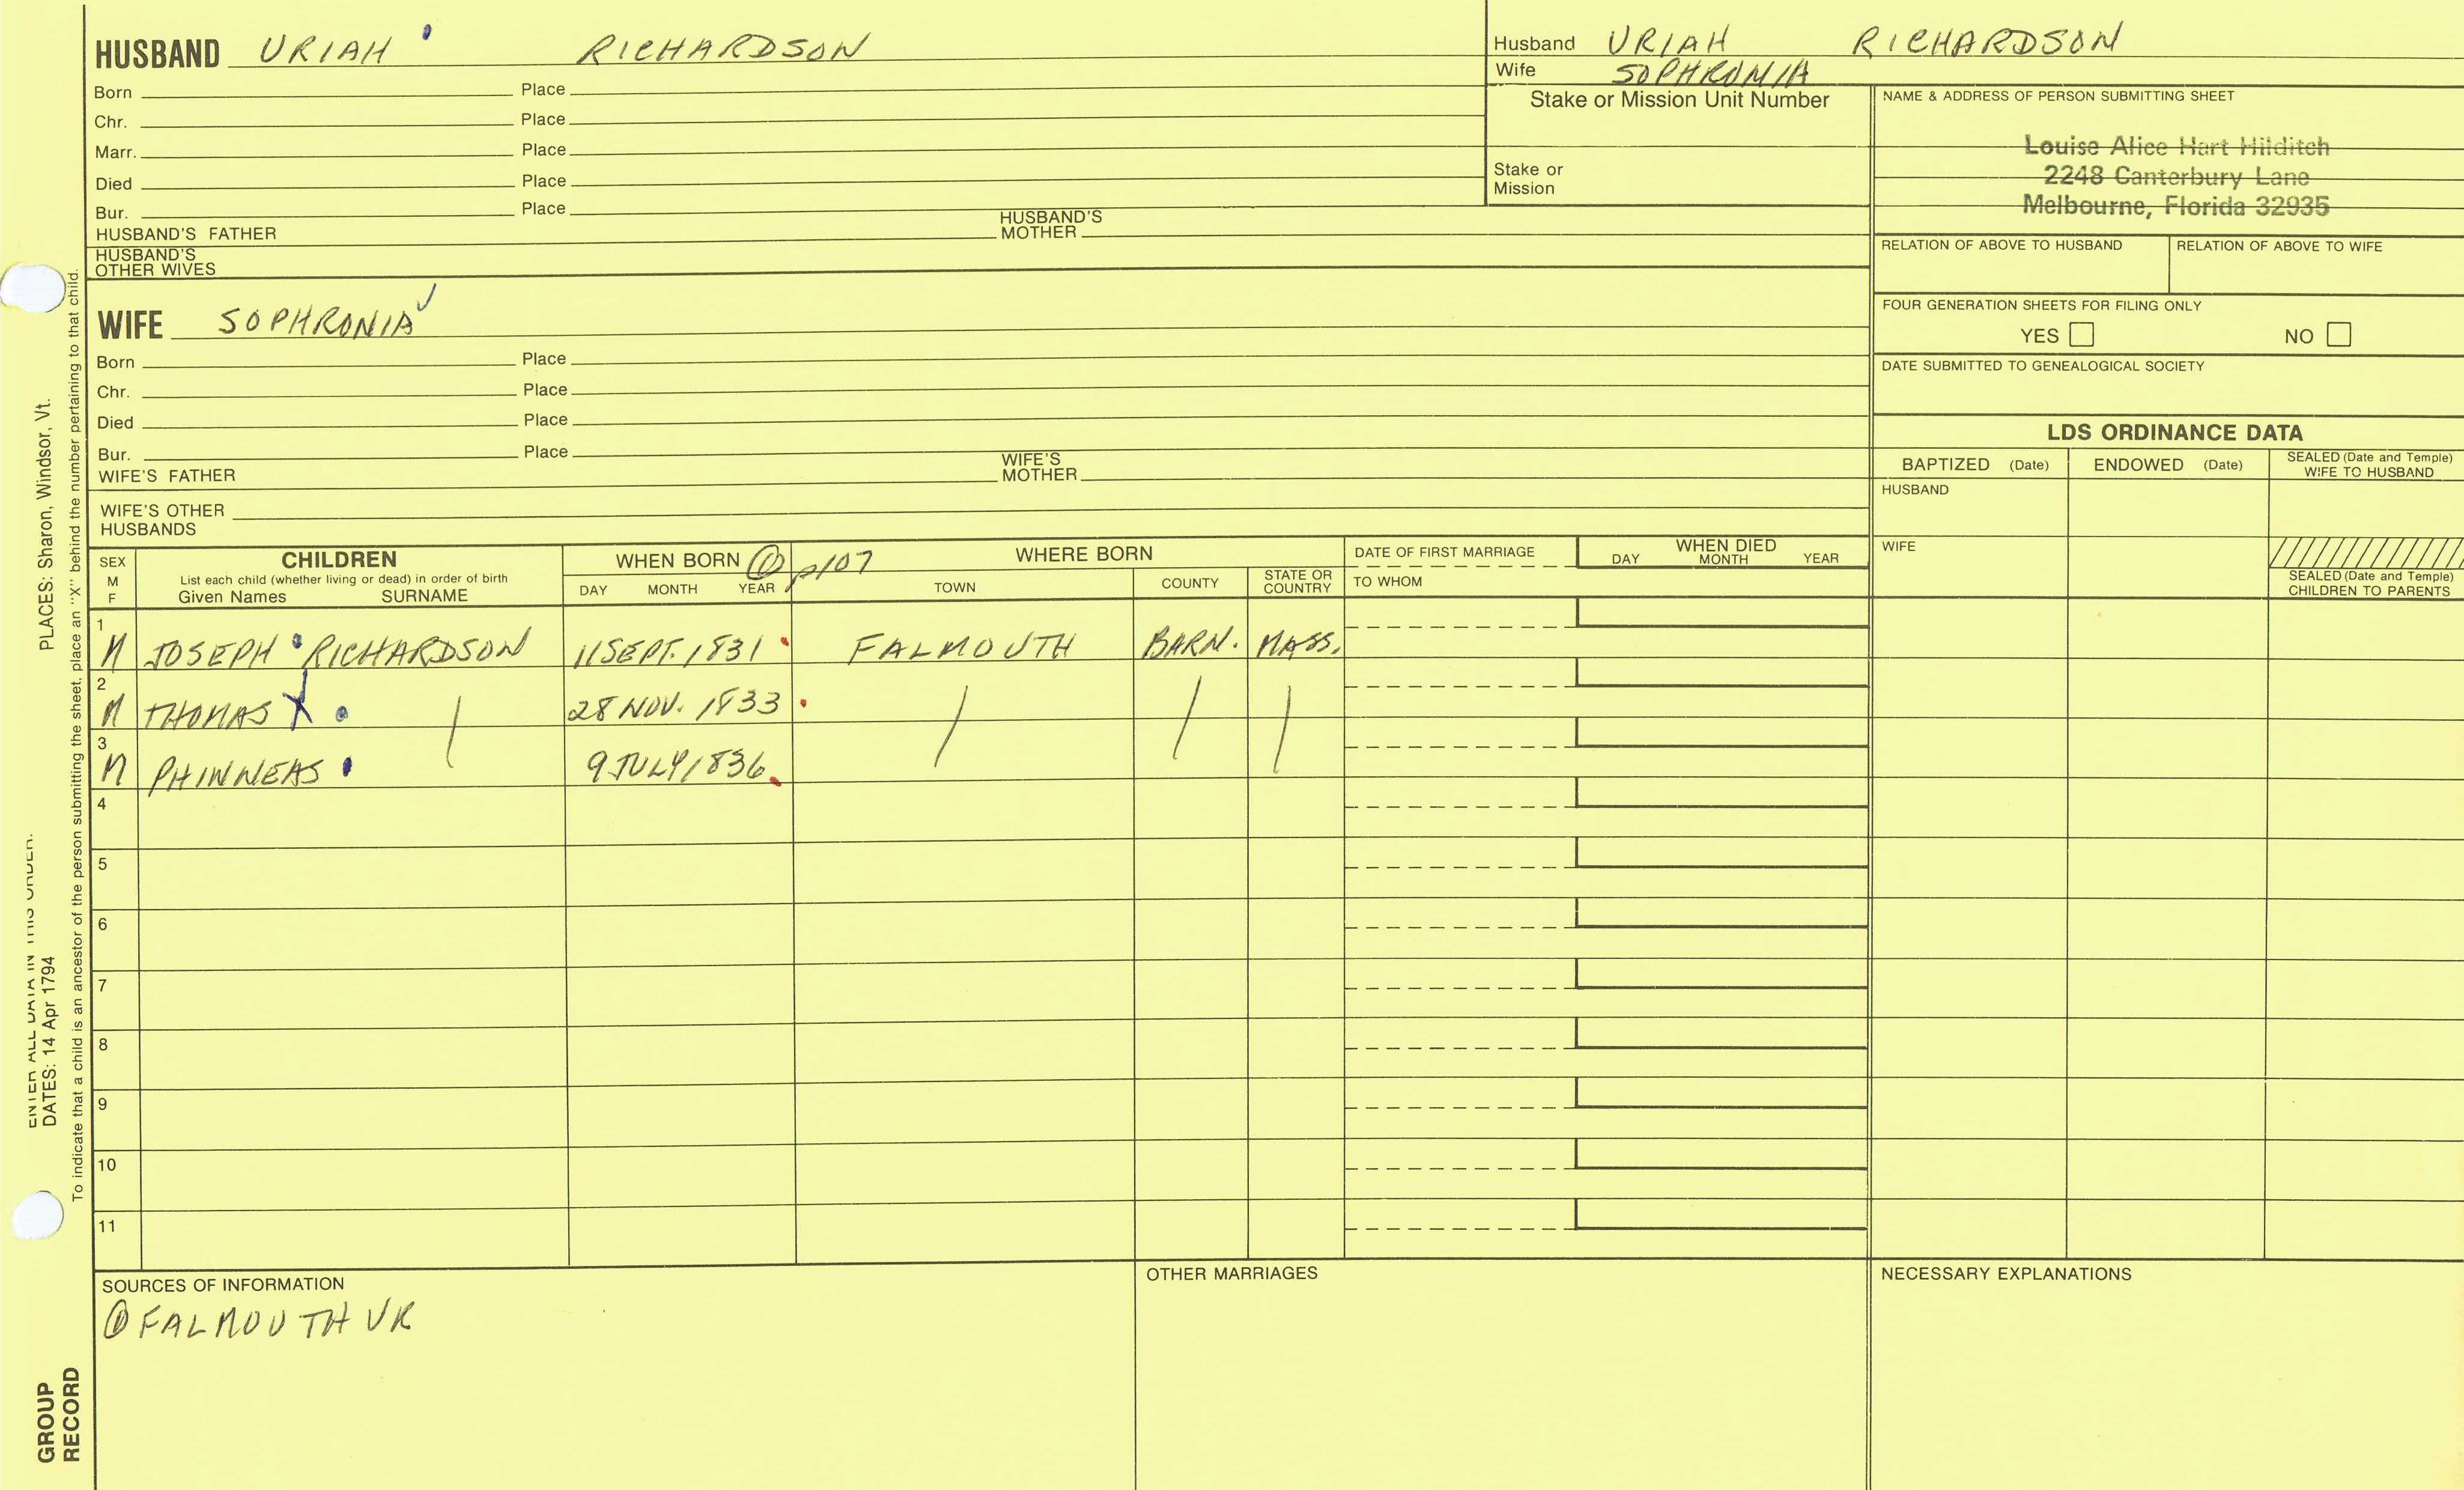 HUSBAND URIAH RICHARDSON
Born Place
Chr. Place
Marr. Place
Died Place
Bur. Place
HUSBAND'S FATHER HUSBAND'S MOTHER
HUSBAND'S OTHER WIVES
Husband URIAH RICHARDSON
Wife SOPHRONIA
Stake or Mission Unit Number
Stake or Mission
NAME & ADDRESS OF PERSON SUBMITTING SHEET
Louise Alice Hart Hilditch
2248 Canterbury Lane
Melbourne, Florida 32935
RELATION OF ABOVE TO HUSBAND RELATION OF ABOVE TO WIFE
FOUR GENERATION SHEETS FOR FILING ONLY
YES NO
DATE SUBMITTED TO GENEALOGICAL SOCIETY
WIFE SOPHRONIA
Born Place
Chr. Place
Died Place
Bur. Place
WIFE'S FATHER WIFE'S MOTHER
WIFE'S OTHER HUSBANDS
LDS ORDINANCE DATA
BAPTIZED (Date) ENDOWED (Date) SEALED (Date and Temple) WIFE TO HUSBAND
HUSBAND
WIFE
SEALED (Date and Temple) CHILDREN TO PARENTS
SEX M F
CHILDREN
List each child (whether living or dead) in order of birth
Given Names SURNAME
WHEN BORN ① p107
DAY MONTH YEAR
WHERE BORN
TOWN COUNTY STATE OR COUNTRY
DATE OF FIRST MARRIAGE
TO WHOM
WHEN DIED
DAY MONTH YEAR
1 M JOSEPH RICHARDSON 11 SEPT. 1831 FALMOUTH BARN. MASS.
2 M THOMAS X 28 NOV. 1833
3 M PHINNEAS 9 JULY 1836
4
5
6
7
8
9
10
11
SOURCES OF INFORMATION
① FALMOUTH VR
OTHER MARRIAGES
NECESSARY EXPLANATIONS
ENTER ALL DATA IN THIS ORDER:
DATES: 14 Apr 1794
PLACES: Sharon, Windsor, Vt.
To indicate that a child is an ancestor of the person submitting the sheet, place an "X" behind the number pertaining to that child.
GROUP RECORD